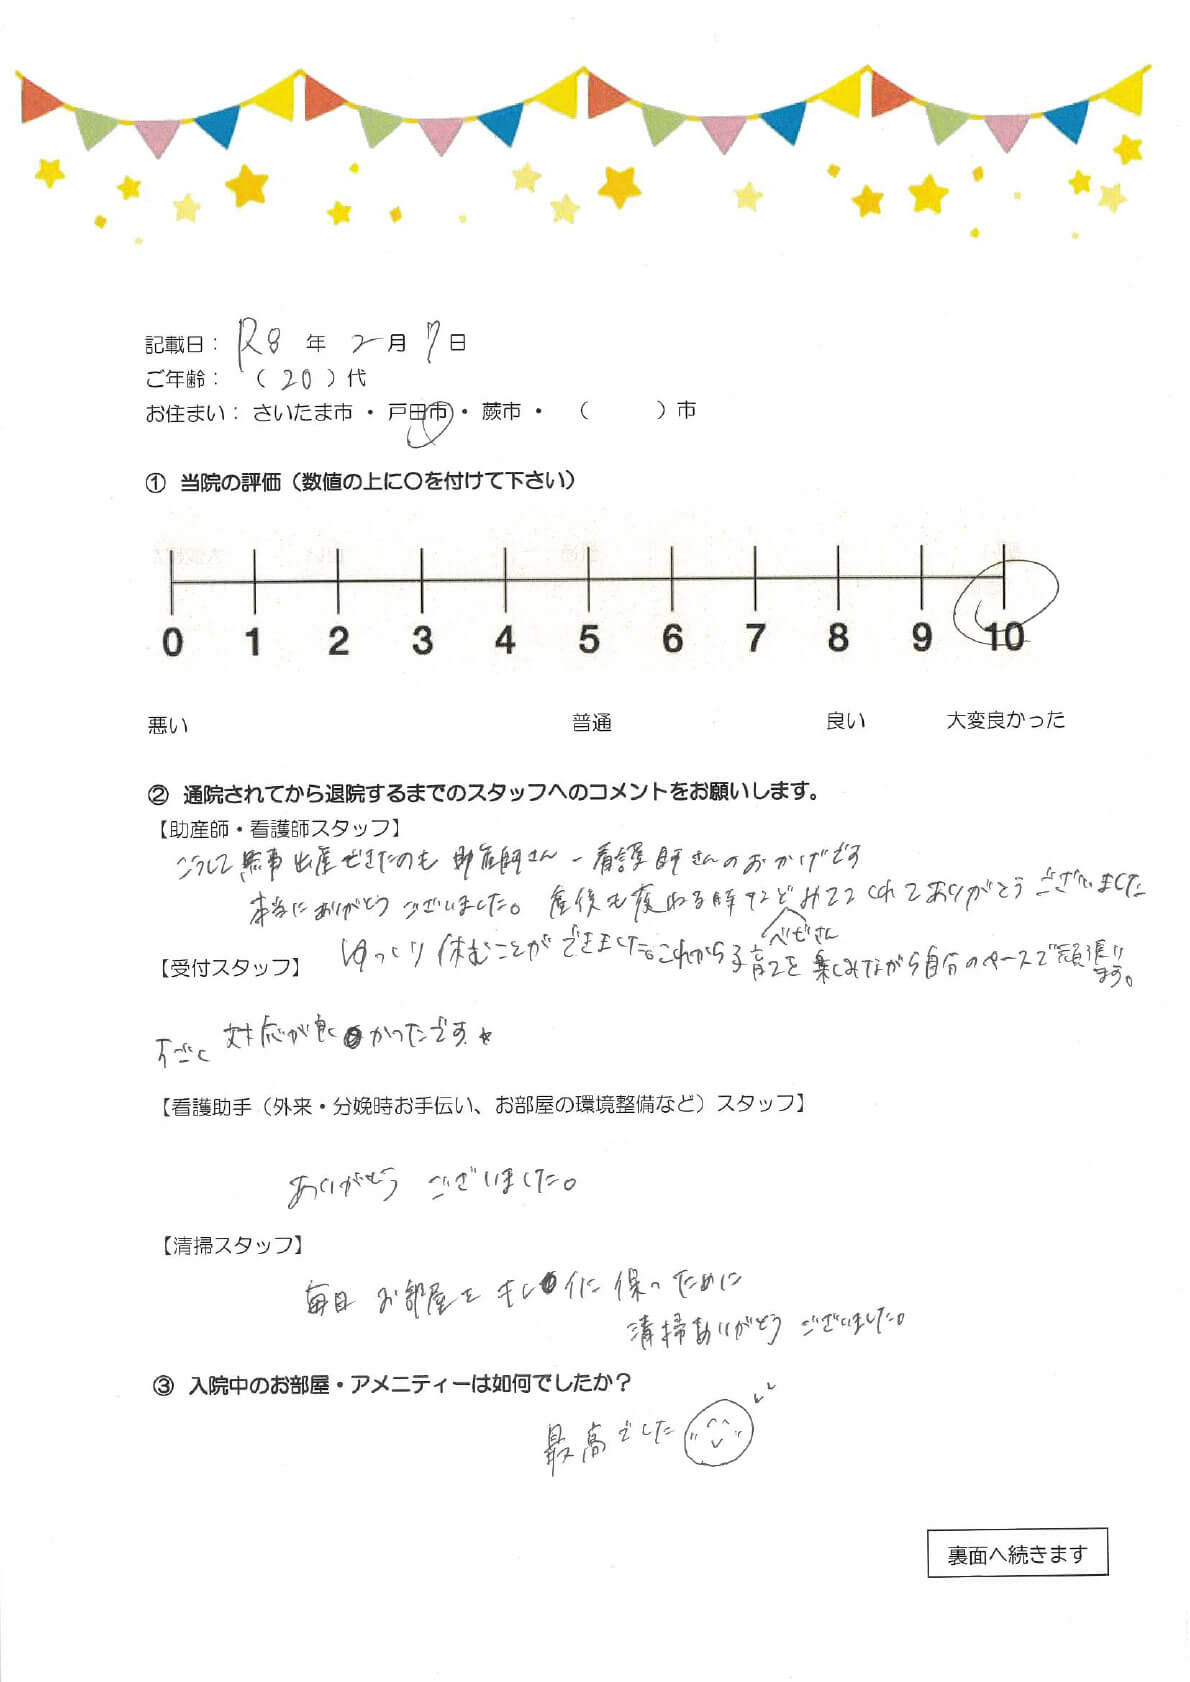 記載日： R8 年 2月 7日
ご年齢： （ 20 ）代
お住まい： さいたま市 ・ 戸田市 ・ 蕨市 ・ （ ）市
① 当院の評価（数値の上に〇を付けて下さい）
0 1 2 3 4 5 6 7 8 9 10
悪い 普通 良い 大変良かった
② 通院されてから退院するまでのスタッフへのコメントをお願いします。
【助産師・看護師スタッフ】
こうして無事出産できたのも 助産師さん－看護師さんのおかげです
本当にありがとうございました。産後も疲れる時などみててくれてありがとうございました
べびさん
【受付スタッフ】 ゆっくり休むことができました。これから子育てを楽しみながら自分のペースで頑張り
ます。
すごく対応が良かったです★
【看護助手（外来・分娩時お手伝い、お部屋の環境整備など）スタッフ】
ありがとうございました。
【清掃スタッフ】
毎日お部屋をキレイに保つために
清掃ありがとうございました。
③ 入院中のお部屋・アメニティーは如何でしたか？
最高でした
裏面へ続きます